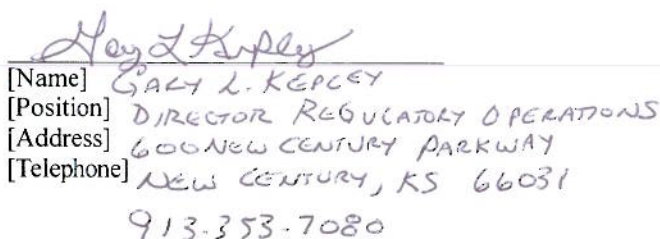 Gary L Kepley
[Name] GARY L. KEPLEY
[Position] DIRECTOR REGULATORY OPERATIONS
[Address] 600 NEW CENTURY PARKWAY
[Telephone] NEW CENTURY, KS 66031
913-353-7080